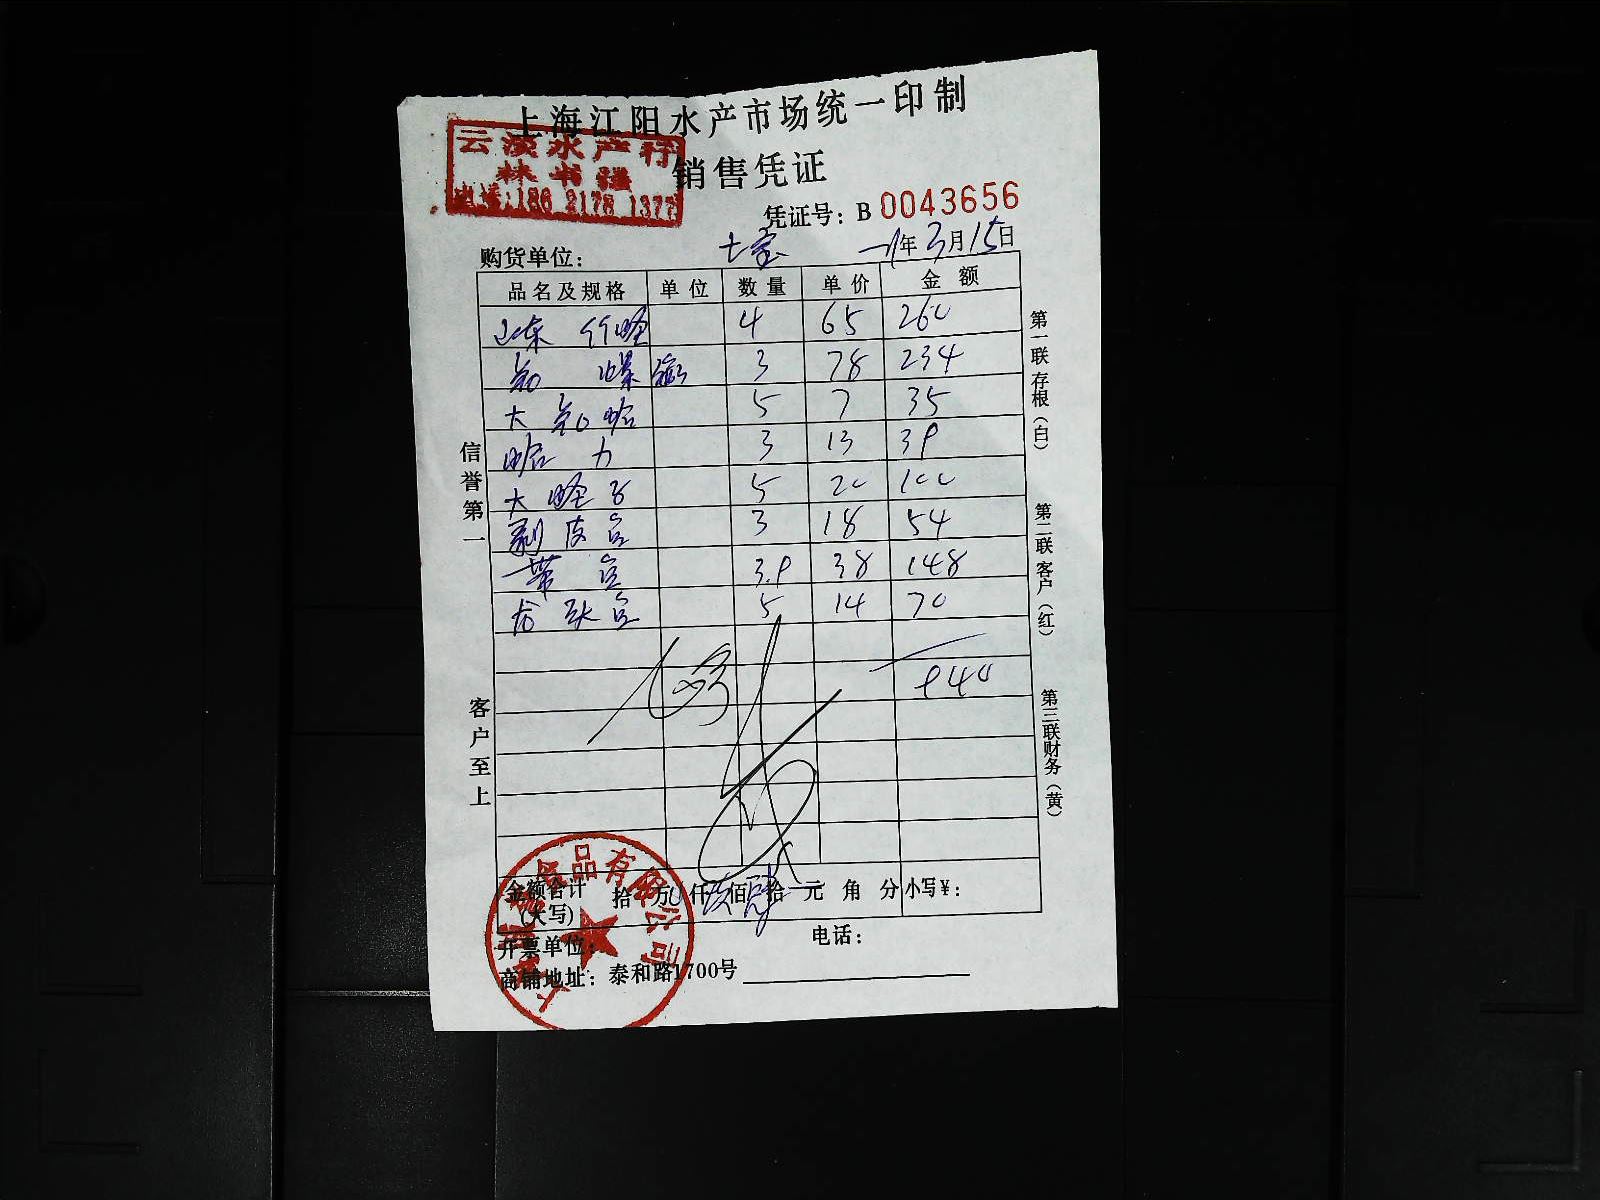 上海江阳水产市场统一印制
云淡水产行
林书强
电话:186 2178 1377
销售凭证
凭证号: B 0043656
购货单位:
年 3月15日
品名及规格 单位 数量 单价 金额
山东 竹蛏 4 65 260
3 78 234
大 5 7 35
哈 力 3 13 39
大 蛏子 5 20 100
剥皮鱼 3 18 54
带 鱼 3.9 38 148
龙头鱼 5 14 70
940
信誉第一
客户至上
第一联存根(白)
第二联客户(红)
第三联财务(黄)
金额合计(大写) 拾 万 仟 佰 肆拾 元 角 分 小写¥:
开票单位: 电话:
商铺地址: 泰和路1700号
食品有限公司